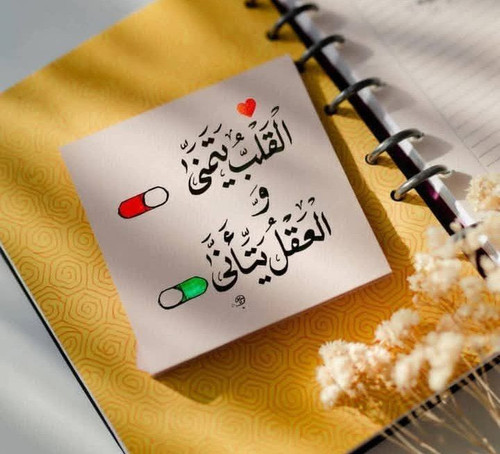 الْقَلْبُ يَتَمَنَّى
وَ
الْعَقْلُ يَتَأَنَّى